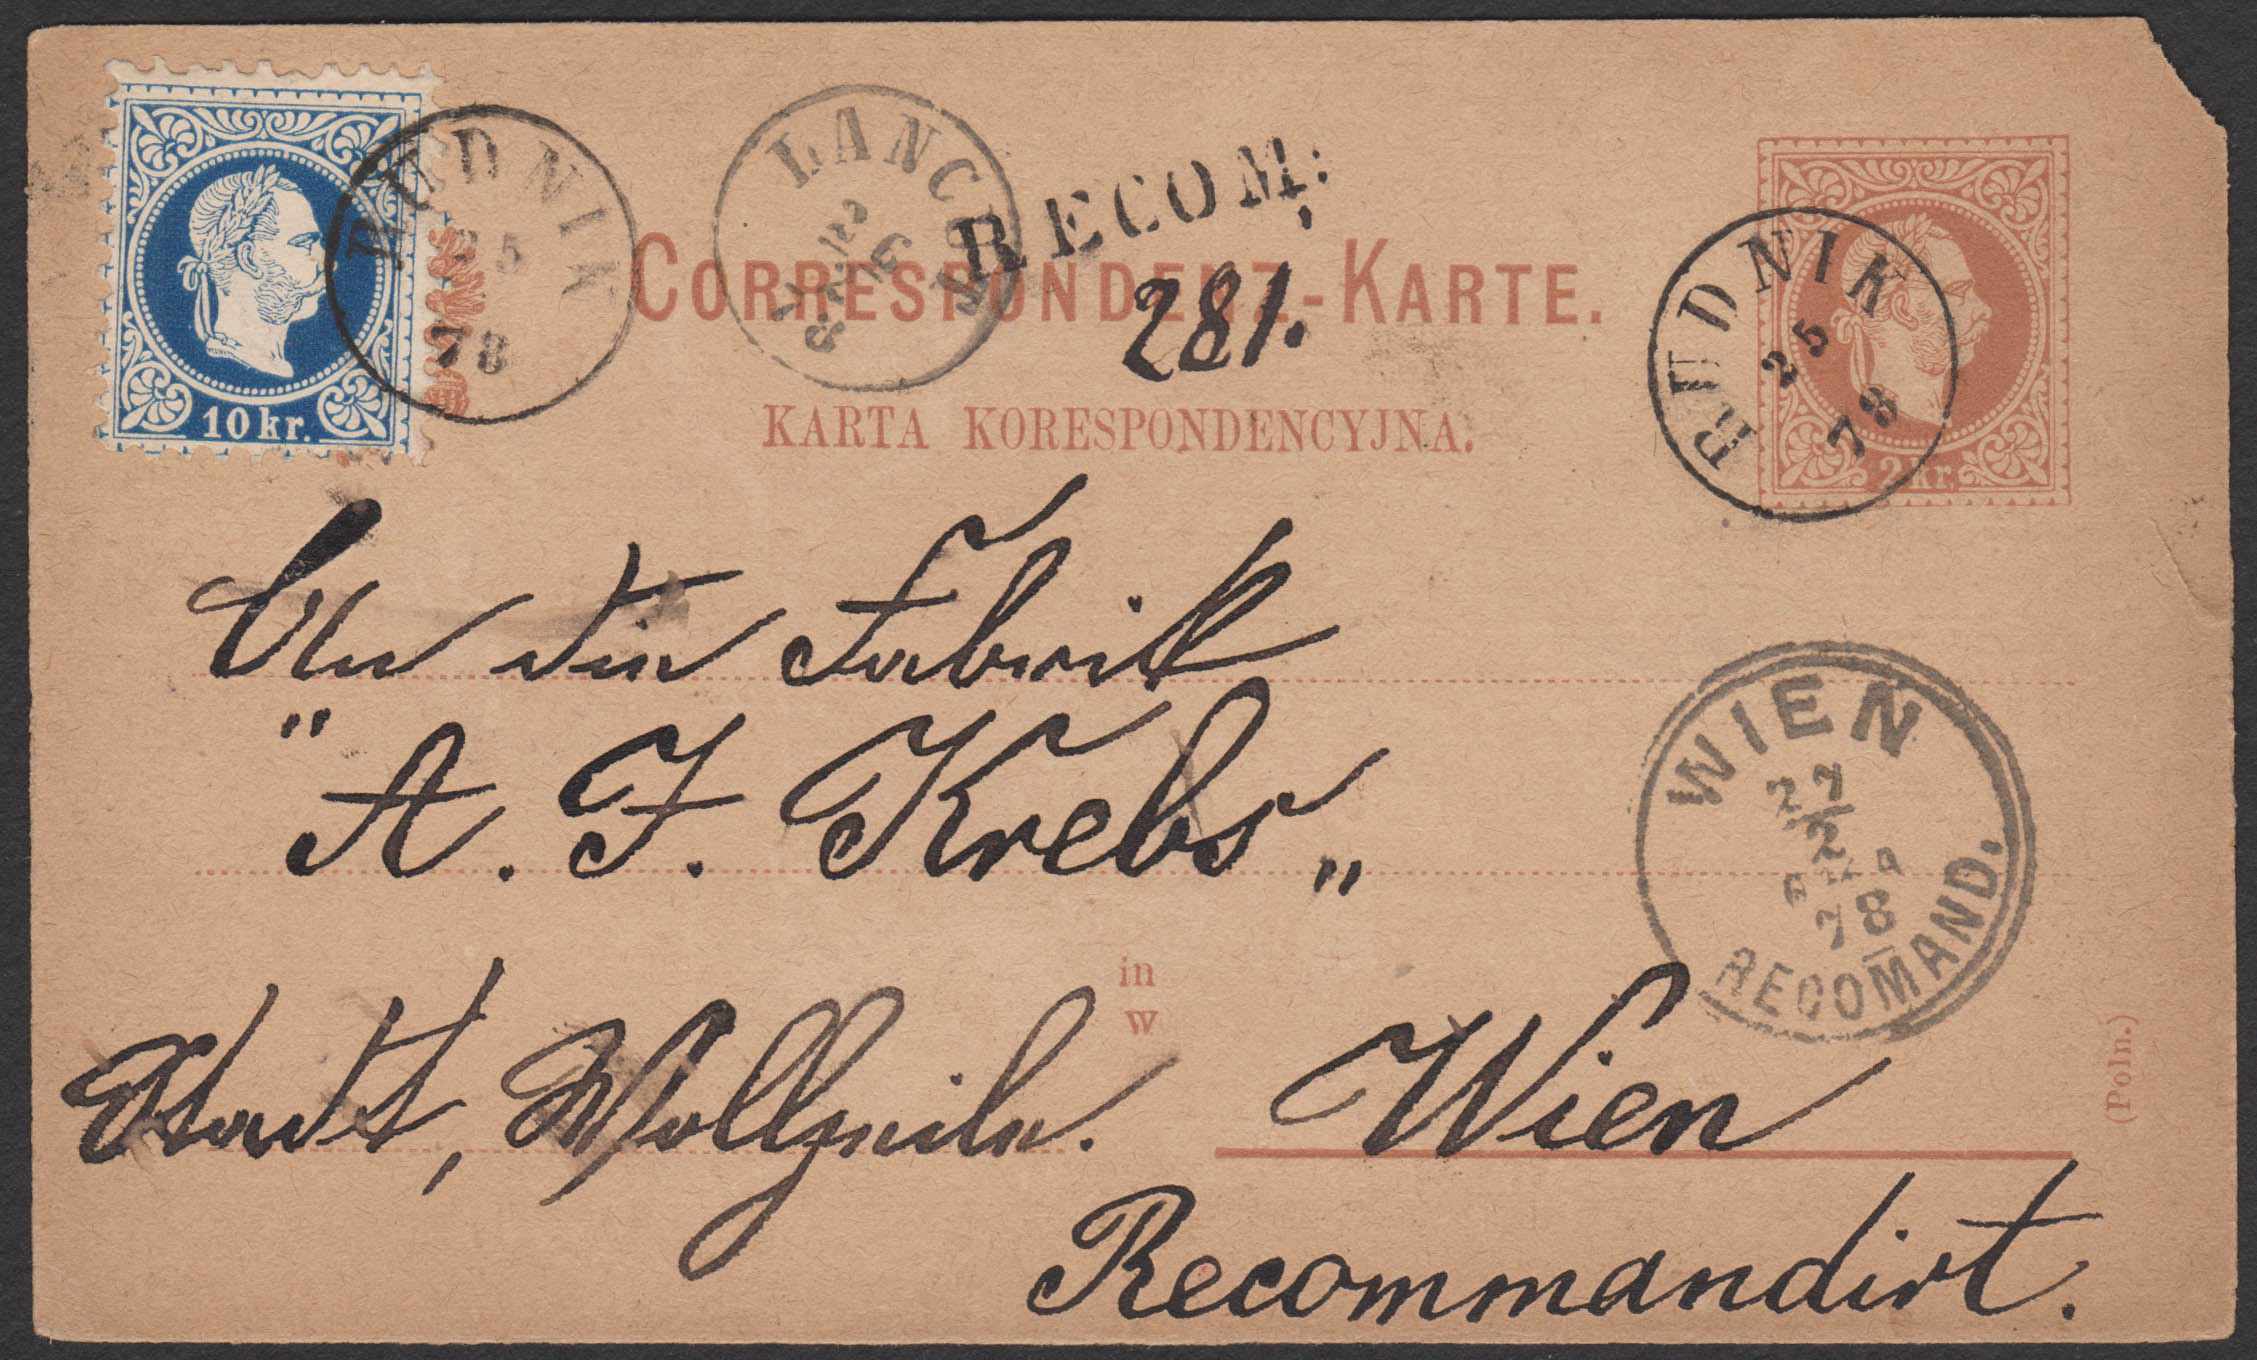 10 kr.
RUDNIK
25
78
RECOM:
281.
CORRESPONDENZ-KARTE.
KARTA KORESPONDENCYJNA.
2 kr.
RUDNIK
25
78
An die Fabrik
"A. F. Krebs"
WIEN
27
2
78
RECOMAND.
in
w
Stadt, Wollzeile. Wien
Recommandirt.
(Poln.)